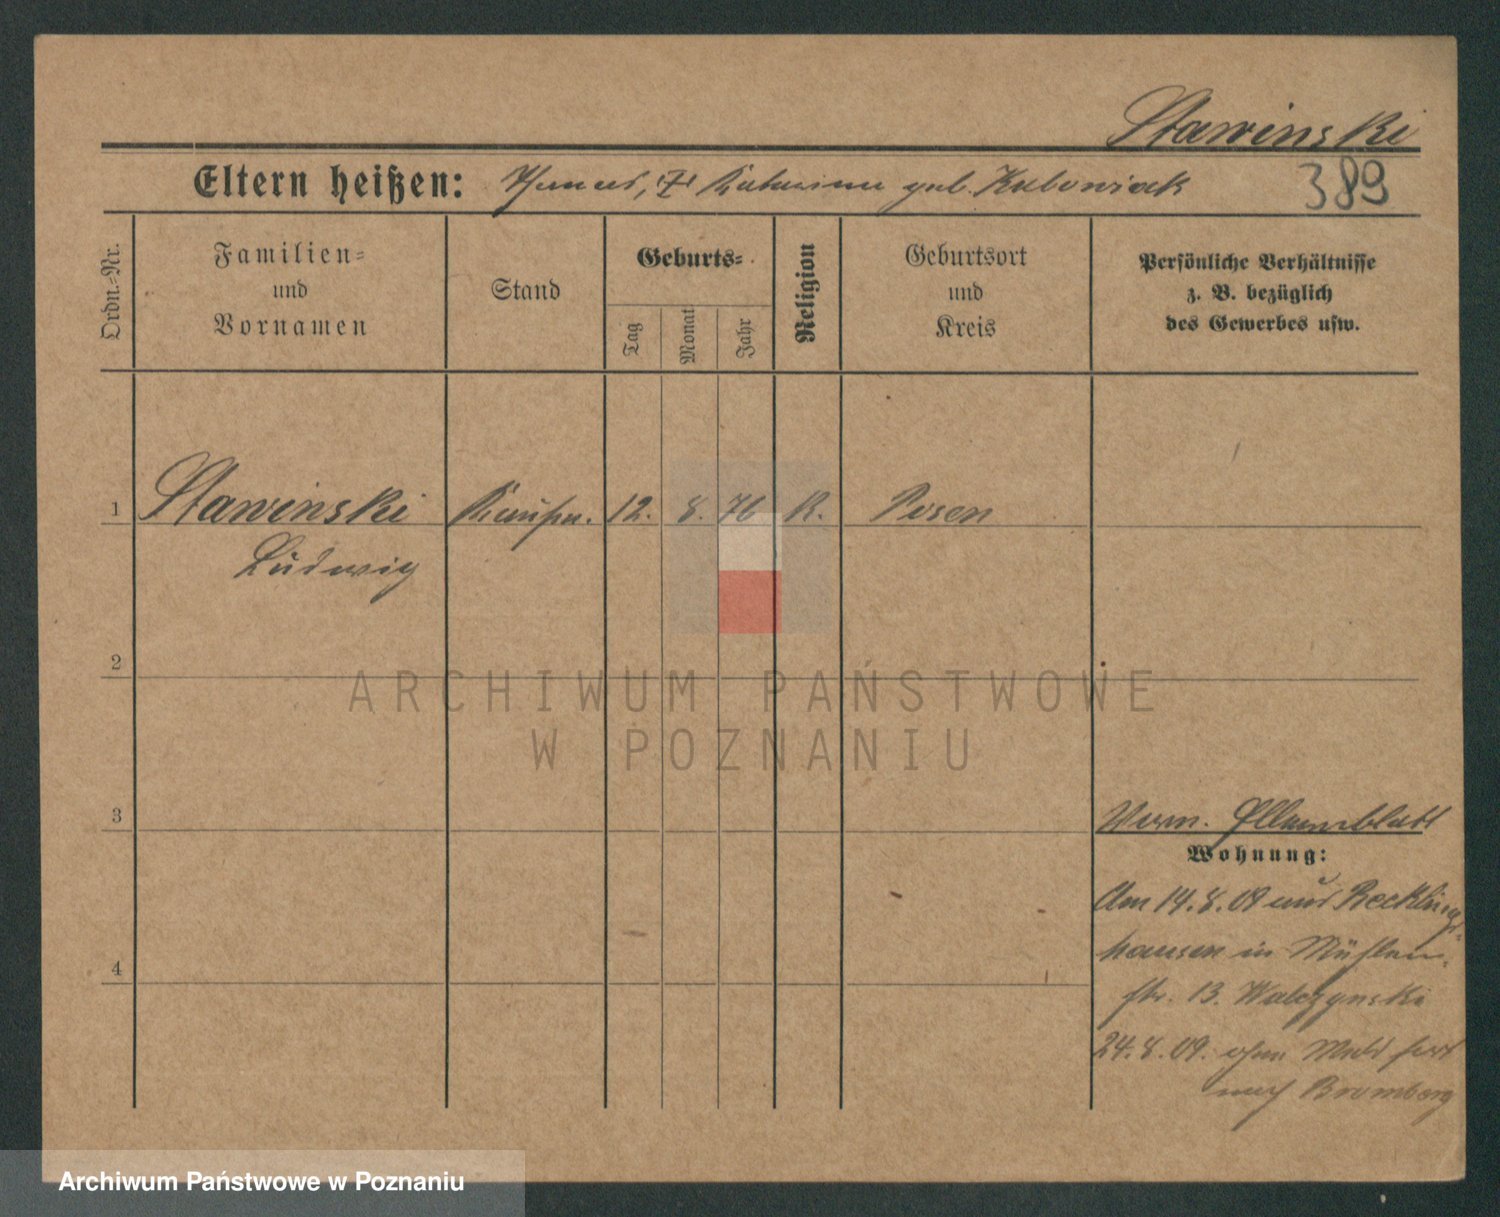 Stawinski
Eltern heißen: Katarina geb. Kubowiak
389
Ordn.-Nr.
Familien-
und
Vornamen
Stand
Geburts-
Tag
Monat
Jahr
Religion
Geburtsort
und
Kreis
Persönliche Verhältnisse
z. B. bezüglich
des Gewerbes usw.
1 Stawinski Kaufm. 12. 8. 76 K. Posen
Ludwig
2
3
4
Wohnung:
Am 14.8.09 aus Recklings-
hausen in Mühlen-
str. 13. Walczynski
24.8.09. ohne Meld fort
nach Bromberg
ARCHIWUM PAŃSTWOWE
W POZNANIU
Archiwum Państwowe w Poznaniu